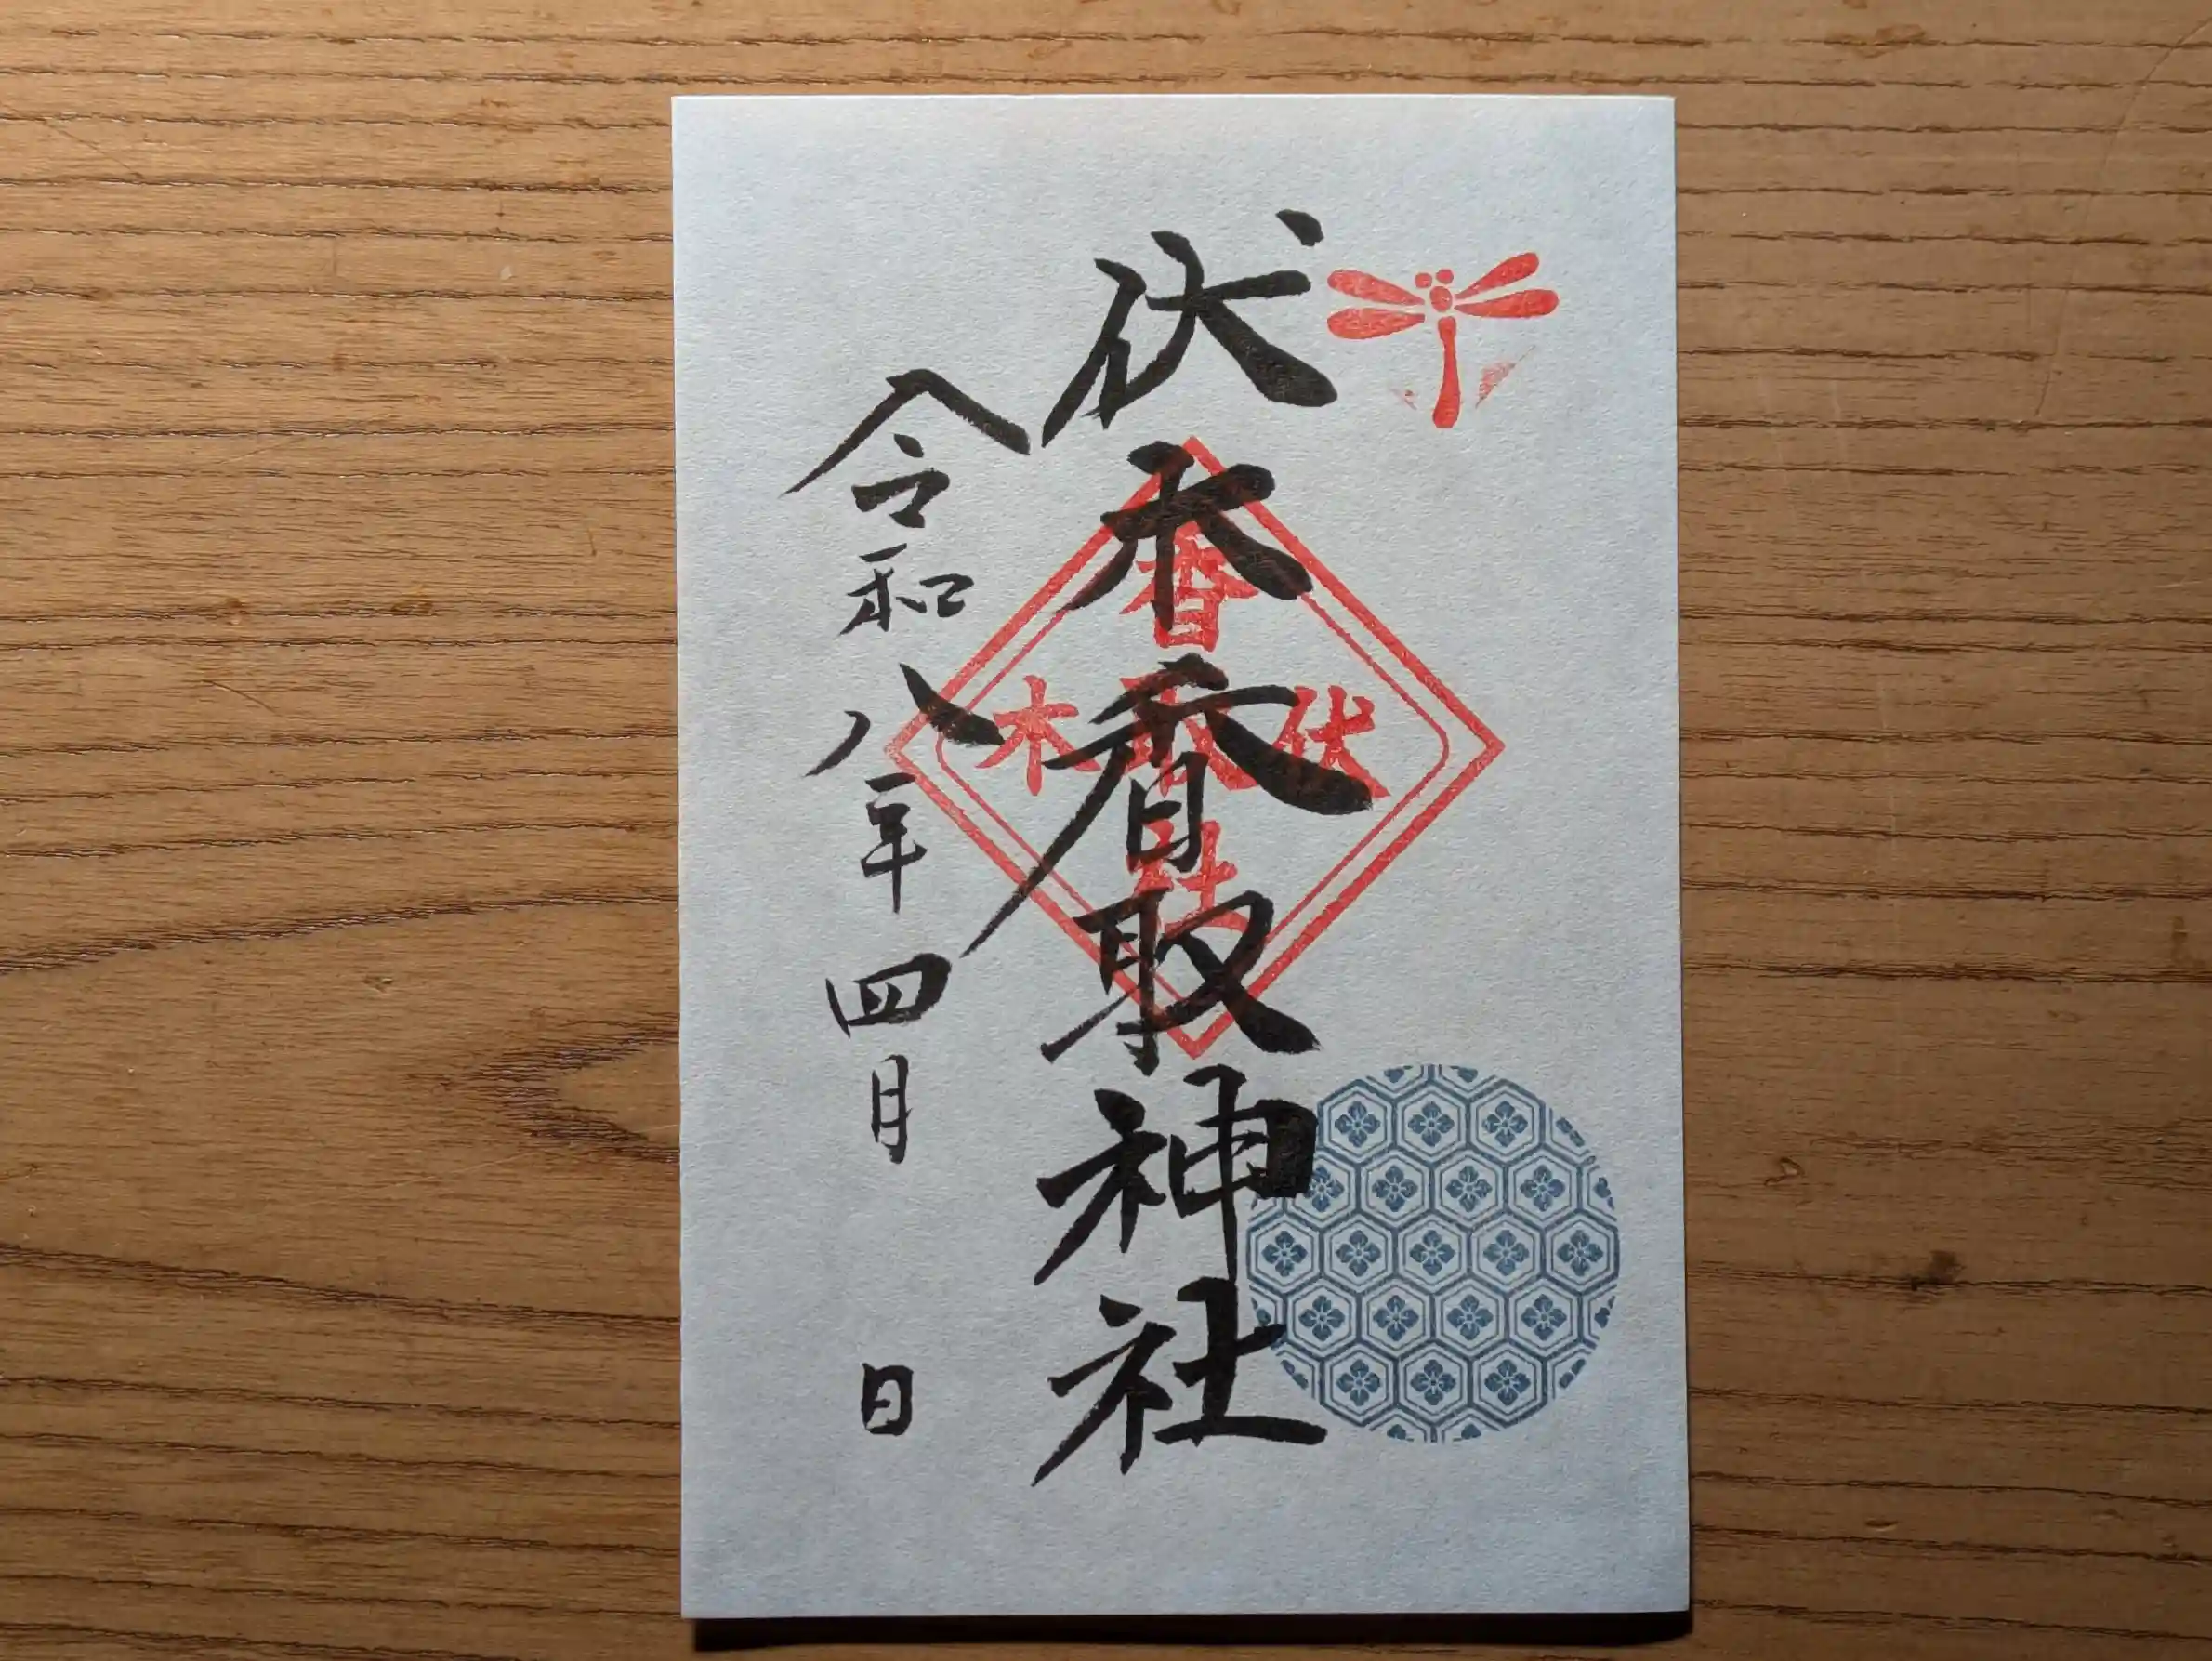 伏木香取神社
令和八年四月 日
香
伏 取 木
社